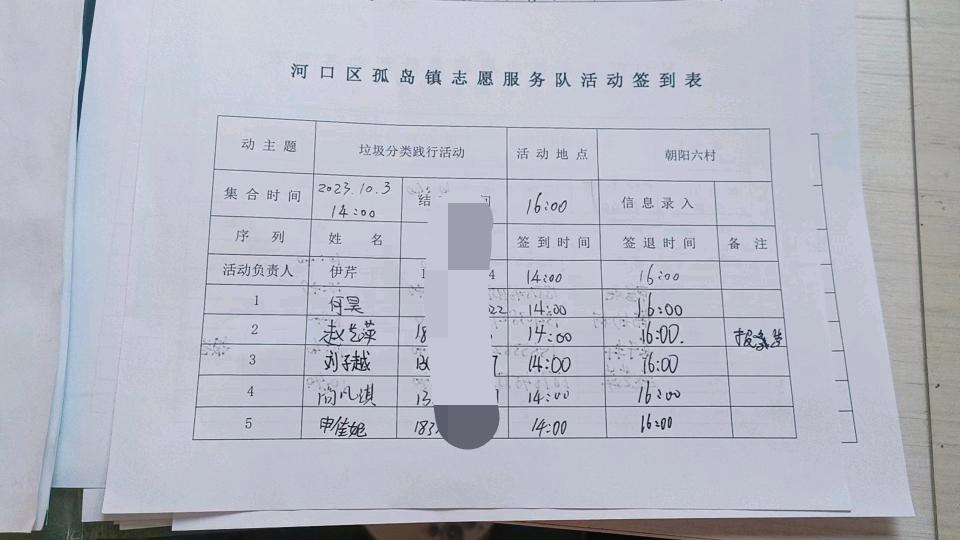 河口区孤岛镇志愿服务队活动签到表
动主题 垃圾分类践行活动 活动地点 朝阳六村
集合时间 2023.10.3 14:00 结 间 16:00 信息录入
序列 姓名 签到时间 签退时间 备注
活动负责人 伊芹 1 4 14:00 16:00
1 何昊 22 14:00 16:00
2 赵 萍 18 14:00 16:00.
3 刘子越 14:00 16:00
4 淇 13 1 14:00 16:00
5 申佳妮 183 14:00 16:00